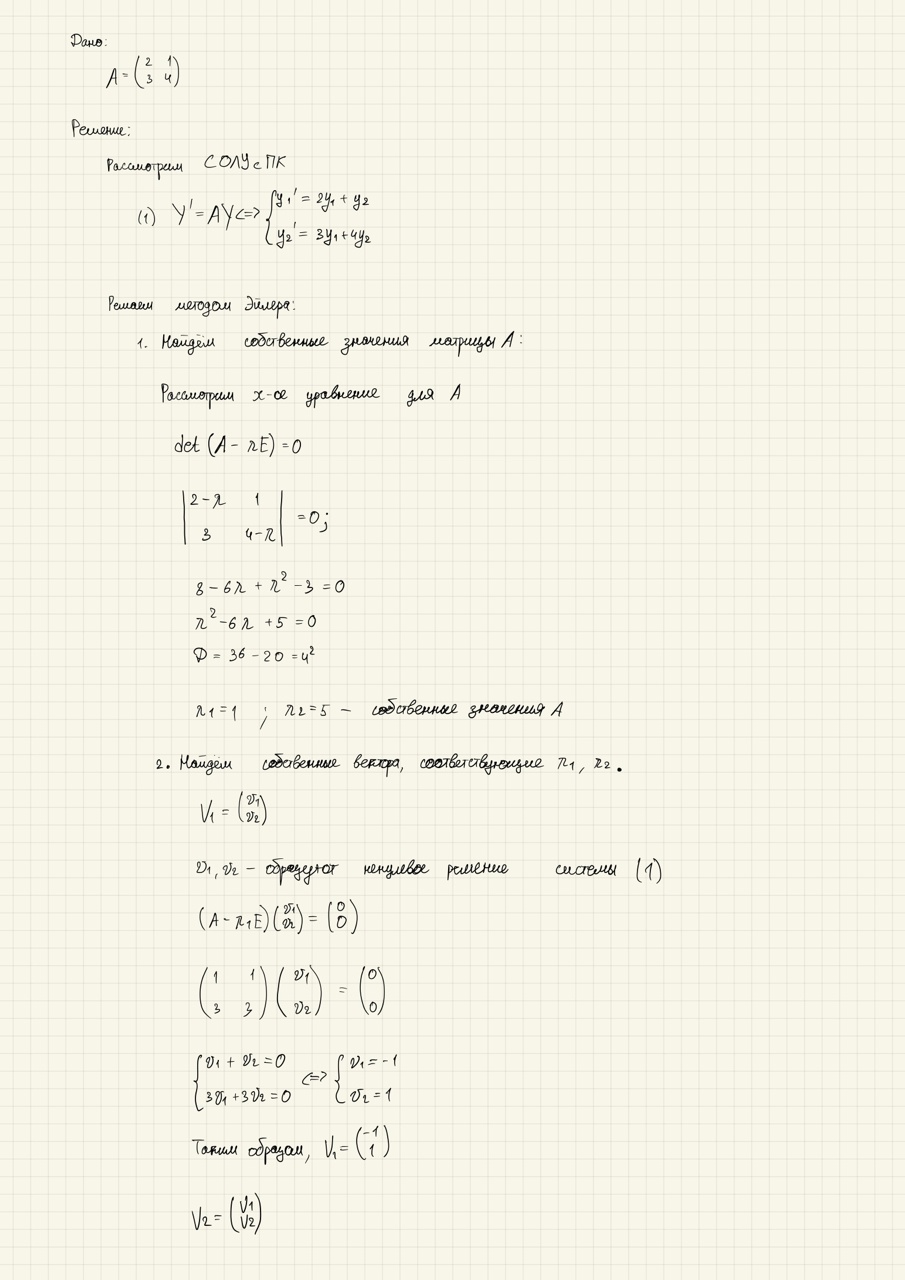 Дано:
A = (2 1
3 4)
Решение:
Рассмотрим СОЛУ с ПК
(1) Y' = AY <=> { y₁' = 2y₁ + y₂
y₂' = 3y₁ + 4y₂
Решаем методом Эйлера:
1. Найдём собственные значения матрицы A:
Рассмотрим х-ое уравнение для A
det (A - λE) = 0
|2 - λ 1
3 4 - λ| = 0;
8 - 6λ + λ² - 3 = 0
λ² - 6λ + 5 = 0
D = 36 - 20 = 4²
λ₁ = 1 ; λ₂ = 5 - собственные значения A
2. Найдём собственные вектора, соответствующие λ₁, λ₂.
V₁ = (v₁
v₂)
v₁, v₂ - образуют ненулевое решение системы (1)
(A - λ₁E) (v₁ v₂) = (0 0)
(1 1
3 3) (v₁ v₂) = (0 0)
{ v₁ + v₂ = 0 <=> { v₁ = -1
3v₁ + 3v₂ = 0 v₂ = 1
Таким образом, V₁ = (-1
1)
V₂ = (v₁
v₂)